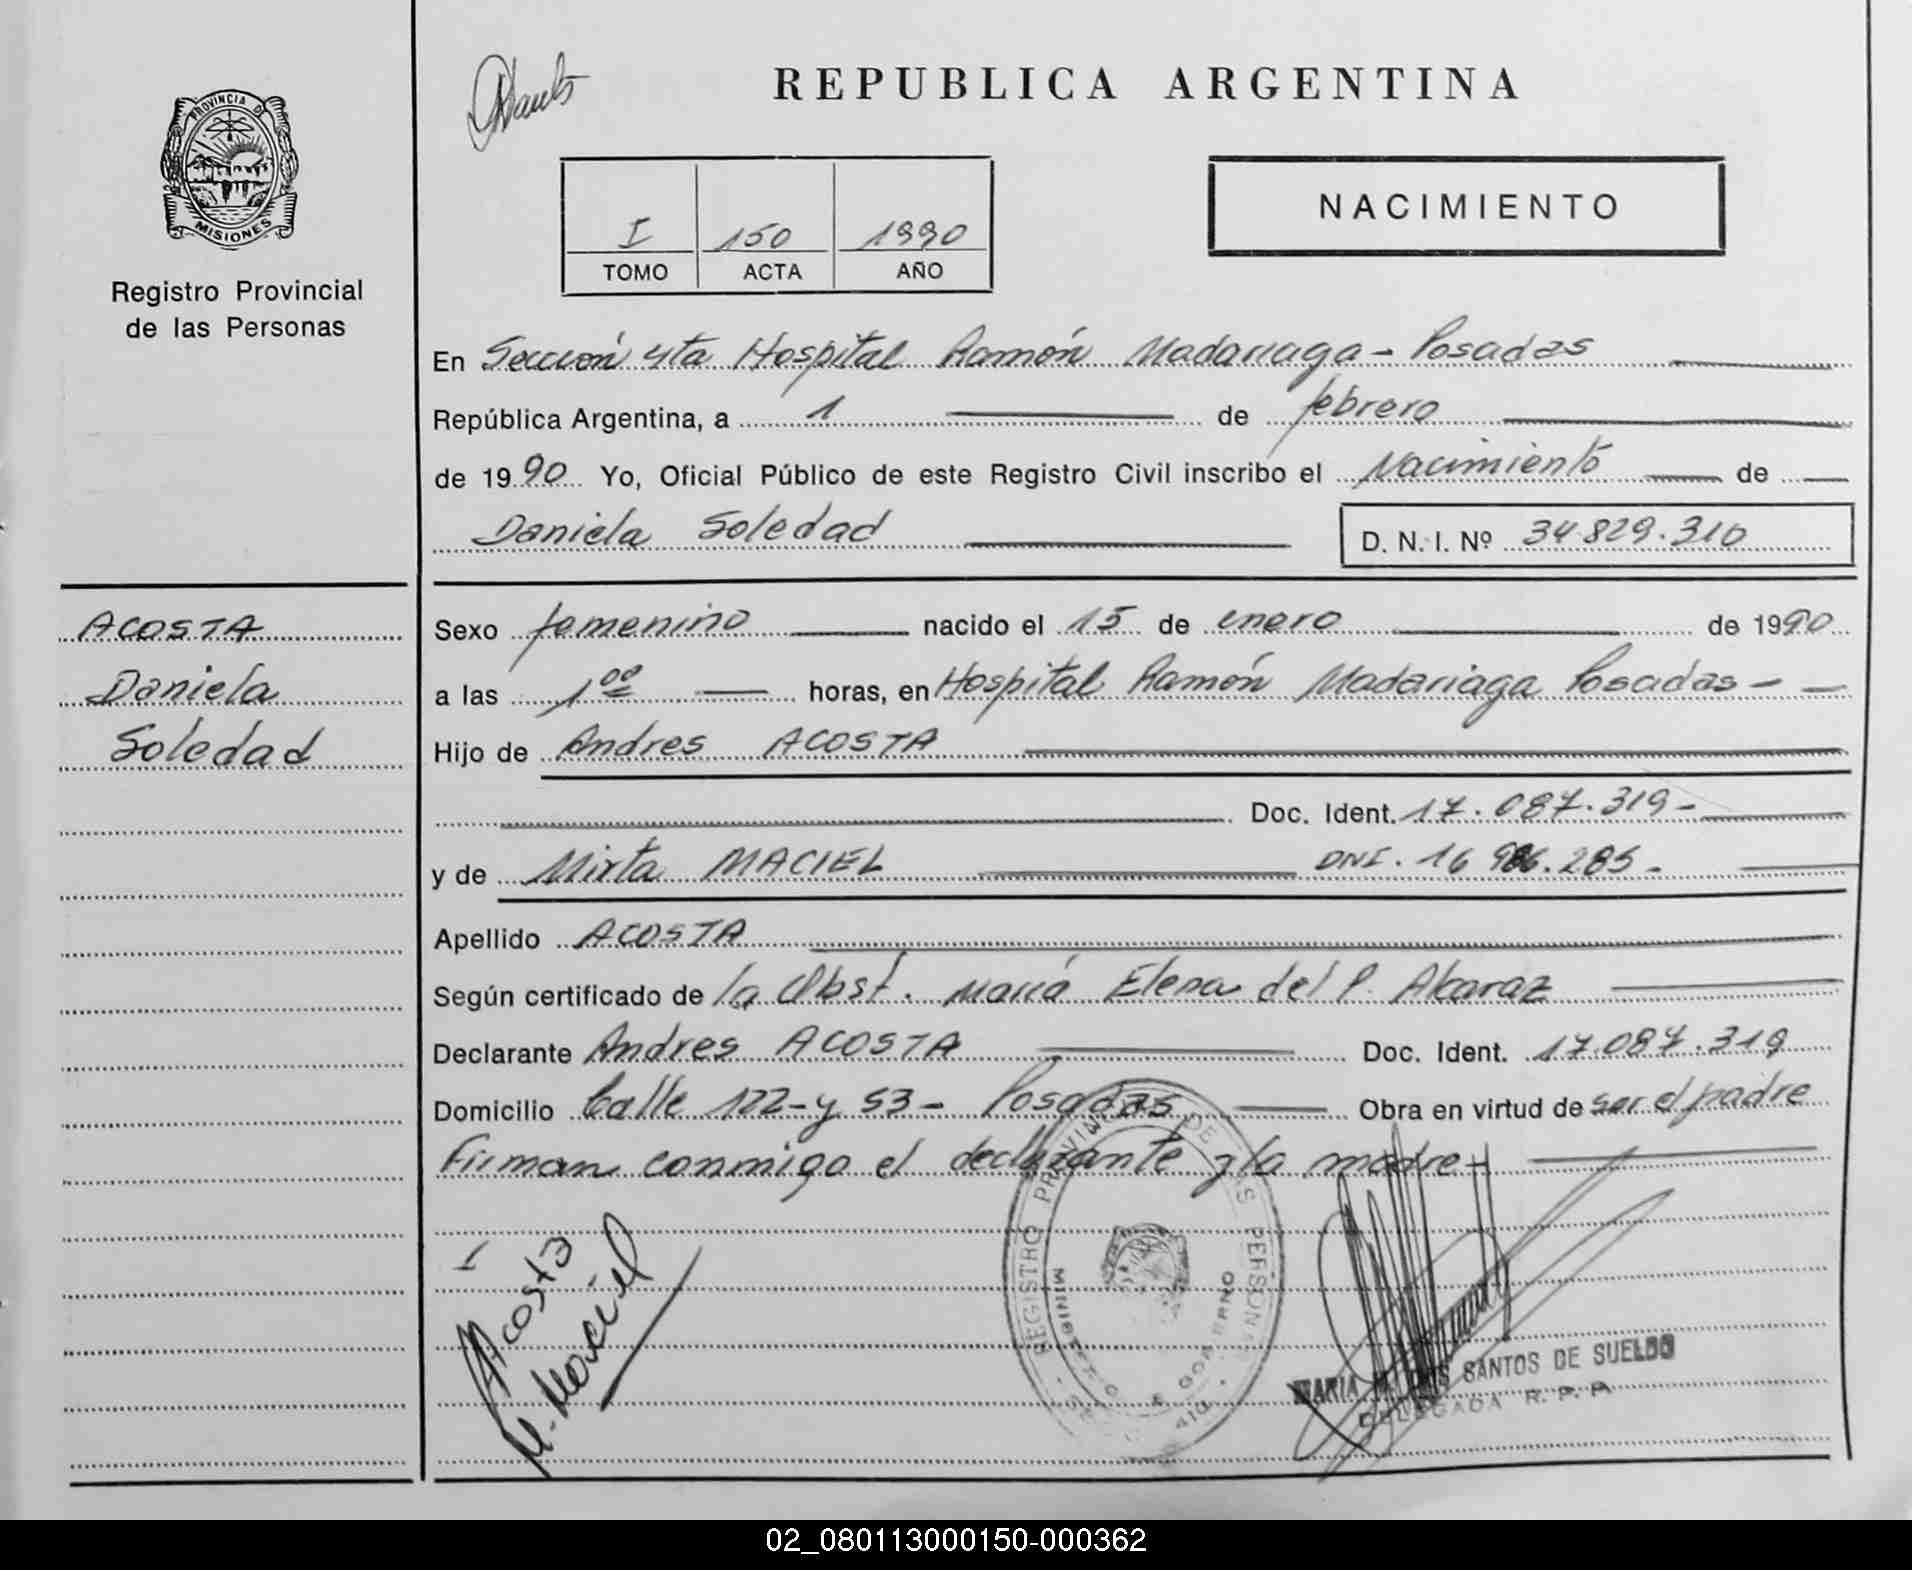 REPUBLICA ARGENTINA
PROVINCIA DE
MISIONES
Registro Provincial
de las Personas
I 150 1990
TOMO ACTA AÑO
NACIMIENTO
En Sección 4ta Hospital Ramón Madariaga - Posadas
República Argentina, a 1 de febrero
de 1990 Yo, Oficial Público de este Registro Civil inscribo el Nacimiento de
Daniela Soledad D. N. I. Nº 34.829.310
ACOSTA
Daniela
Soledad
Sexo femenino nacido el 15 de enero de 1990
a las 1 00 horas, en Hospital Ramón Madariaga Posadas -
Hijo de Andres ACOSTA
Doc. Ident. 17.087.319 -
y de Mirta MACIEL DNI. 16 986.285 -
Apellido ACOSTA
Según certificado de la Obst. María Elena del P. Alcaraz
Declarante Andres ACOSTA Doc. Ident. 17.087.319
Domicilio Calle 122 - y 53 - Posadas Obra en virtud de ser el padre
Firman conmigo el declarante y la madre -
I
Acosta
M. Maciel
REGISTRO PROVINCIAL DE LAS PERSONAS
MINISTERIO DE GOBIERNO
MARIA SANTOS DE SUELDO
DELEGADA R. P. P.
02_080113000150-000362